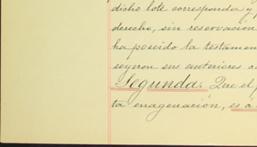 dicho lote corresponda y
derecho, sin reservacion
ha poseido la testamen
segun sus anteriores
Segunda. Que el p
ta enagenacion, es a